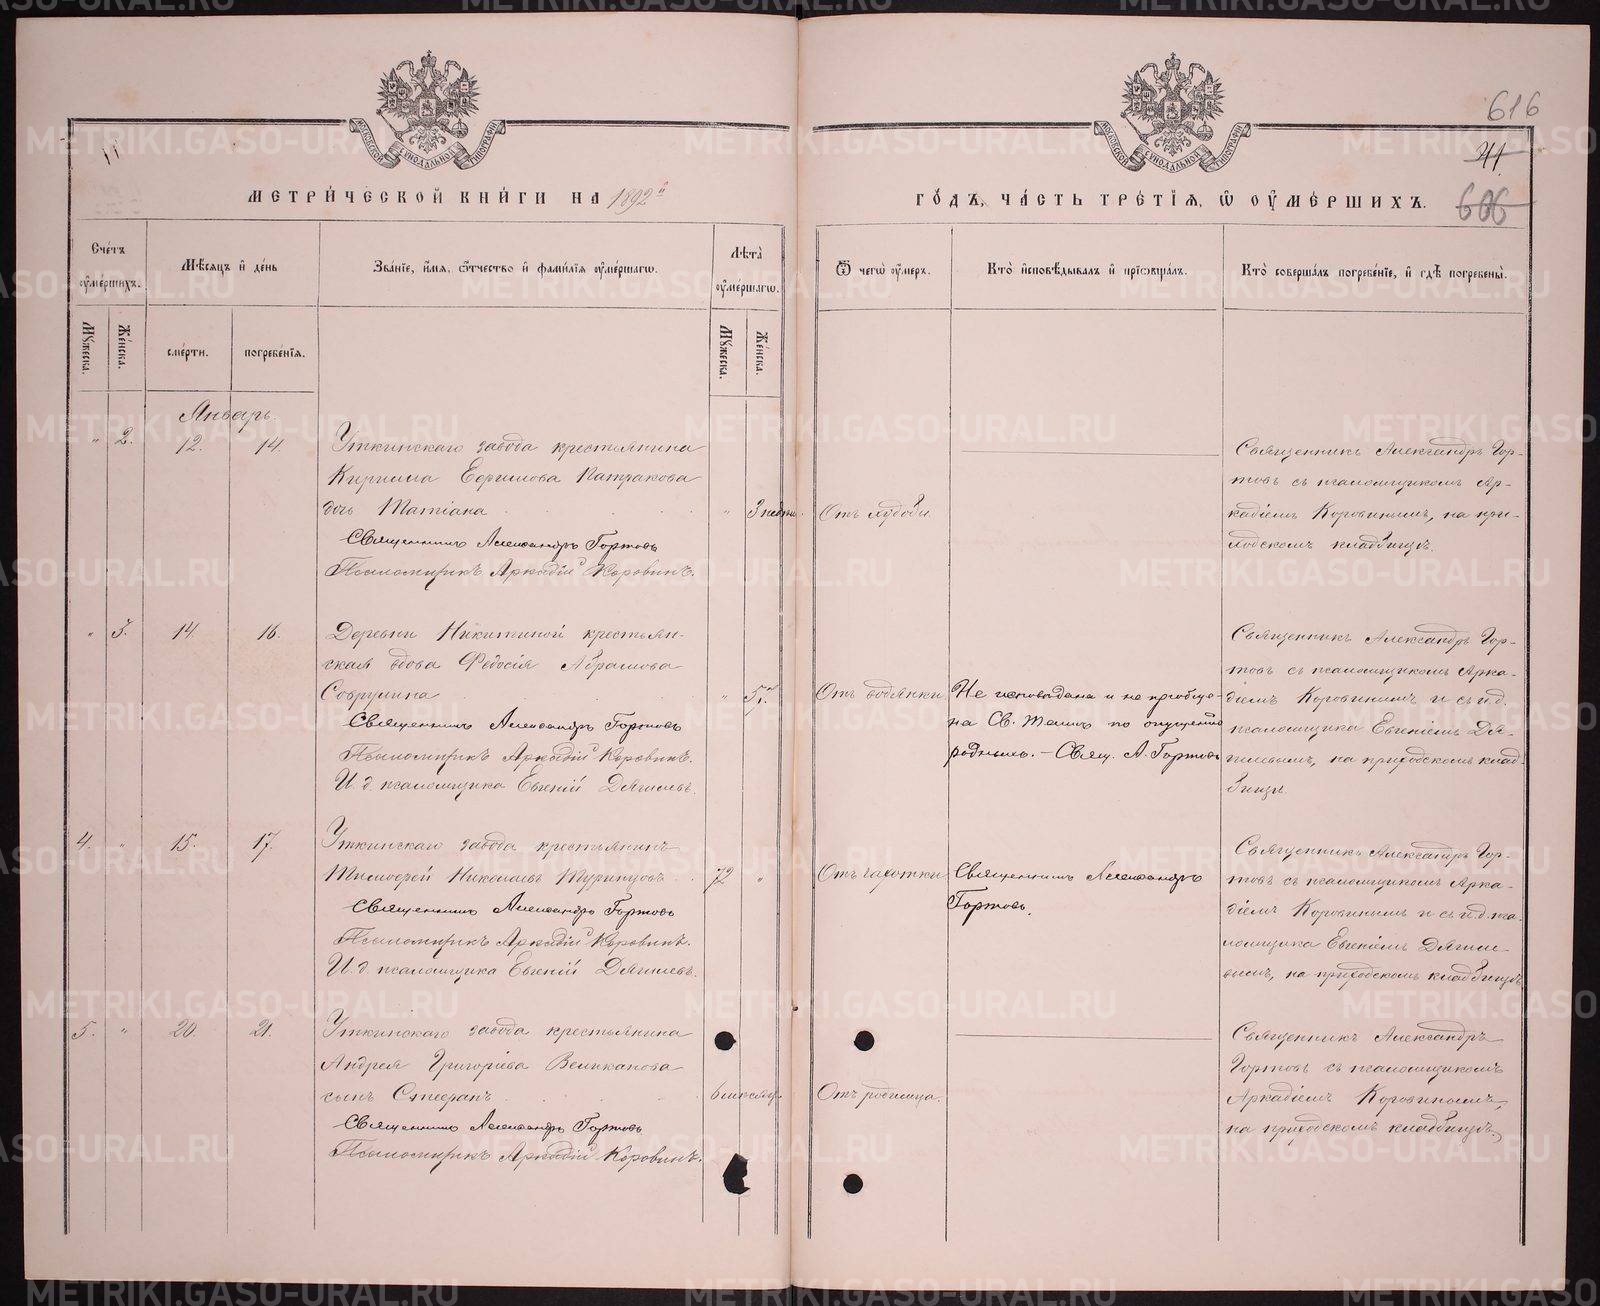 616
11
41
МЕТРИ́ЧЕСКОЙ КНИ́ГИ НА 1892й
ГО́ДЪ, ЧА́СТЬ ТРЕ́ТІѦ, Ѿ ОУ҆МЕ́РШИХЪ.
606
Сче́тъ оу҆ме́ршихъ.
Мѣ́сѧцъ и҆ де́нь
Зва́нїе, и҆́мѧ, ѻ҆́тчество и҆ фами́лїѧ оу҆ме́ршагѡ.
Лѣ́та оу҆ме́ршагѡ.
Ѿ чегѡ̀ оу҆́меръ.
Кто̀ и҆сповѣ́дывалъ и҆ прїѡбща́лъ.
Кто̀ соверша́лъ погребе́нїе, и҆ гдѣ̀ погребены̀.
Мꙋ́жеска.
Же́нска.
сме́рти.
погребе́нїѧ.
Мꙋ́жеска.
Же́нска.
Январь.
" 2. 12. 14.
Уткинскаго завода крестьянина
Кирилла Ефимова Патракова
дочь Татіана " 3 недѣли.
Священникъ Александръ Гортовъ
Псаломщикъ Аркадій Коровинъ.
От
Священникъ Александръ Гор-
товъ съ псаломщикомъ Ар-
кадіемъ Коровинымъ, на при-
ходскомъ кладбищѣ.
" 3. 14. 16.
Деревни Никитиной крестьян-
ская вдова Федосія Абрамова
" 57.
Священникъ Александръ Гортовъ
Псаломщикъ Аркадій Коровинъ.
И. д. псаломщика Евгеній Дягилевъ.
Отъ водянки
Не исповѣдана и не пріобще-
на Св. Таинъ по опущенію
родныхъ. – Свящ. А. Гортовъ
Священникъ Александръ Гор-
товъ съ псаломщикомъ Арка-
діемъ Коровинымъ и съ и. д.
псаломщика Евгеніемъ Дя-
гилевымъ, на приходскомъ клад-
бищѣ.
4. " 15. 17.
Уткинскаго завода крестьянинъ
Тимофей Николаевъ Туринцовъ 72 "
Священникъ Александръ Гортовъ
Псаломщикъ Аркадій Коровинъ.
И. д. псаломщика Евгеній Дягилевъ.
Отъ чахотки
Священникъ Александръ
Гортовъ.
Священникъ Александръ Гор-
товъ съ псаломщикомъ Арка-
діемъ Коровинымъ и съ и. д. пса-
ломщика Евгеніемъ Дягиле-
вымъ, на приходскомъ кладбищѣ
5. " 20. 21.
Уткинскаго завода крестьянина
Андрея Григоріева Великанова
сынъ Стефанъ
Священникъ Александръ Гортовъ
Псаломщикъ Аркадій Коровинъ.
Отъ родимца.
Священникъ Александръ
Гортовъ съ псаломщикомъ
Аркадіемъ Коровинымъ,
на приходскомъ кладбищѣ.
METRIKI.GASO-URAL.RU